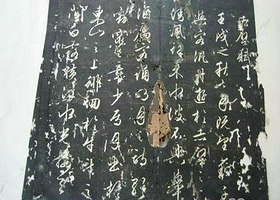 赤壁賦
壬戌之秋七月既望蘇
與客泛舟遊於赤壁
清風徐來水波不興舉
酒屬客誦明月之詩歌
窈窕之章少焉月出於
東山之上徘徊於斗牛之
間白露橫江水光接